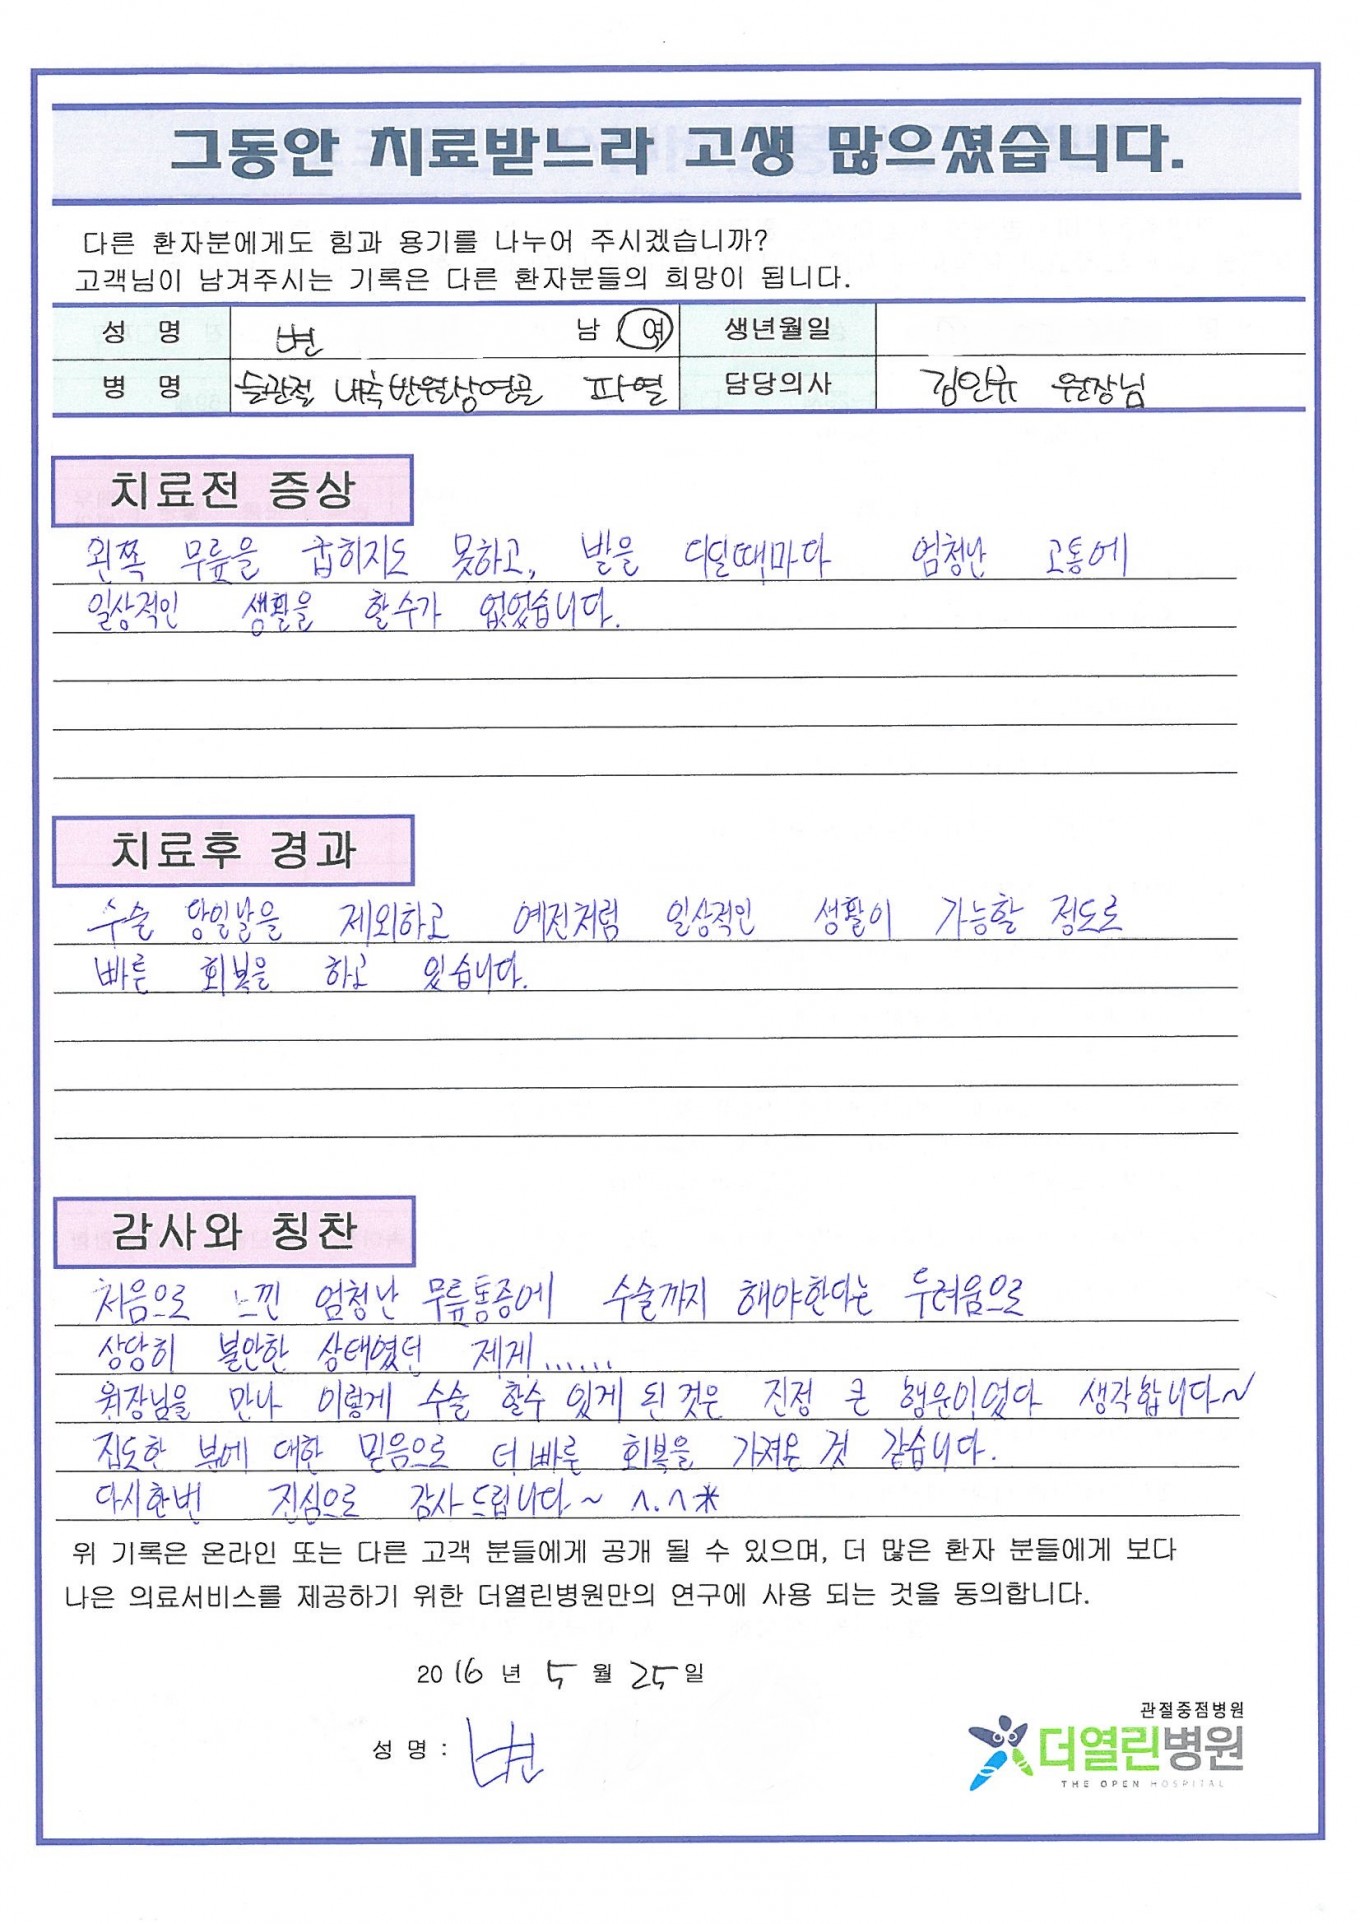 그동안 치료받느라 고생 많으셨습니다.
다른 환자분에게도 힘과 용기를 나누어 주시겠습니까?
고객님이 남겨주시는 기록은 다른 환자분들의 희망이 됩니다.
성 명 변 남 여 생년월일
병 명 슬관절 내측반월상연골 파열 담당의사 김안규 원장님
치료전 증상
왼쪽 무릎을 굽히지도 못하고, 발을 디딜때마다 엄청난 고통에
일상적인 생활을 할수가 없었습니다.
치료후 경과
수술 당일날을 제외하고 예전처럼 일상적인 생활이 가능할 정도로
빠른 회복을 하고 있습니다.
감사와 칭찬
처음으로 느낀 엄청난 무릎통증에 수술까지 해야한다는 두려움으로
상당히 불안한 상태였던 제게......
원장님을 만나 이렇게 수술 할수 있게 된것은 진정 큰 행운이었다 생각합니다~
집도한 분에 대한 믿음으로 더 빠른 회복을 가져온 것 같습니다.
다시한번 진심으로 감사드립니다~ ^.^*
위 기록은 온라인 또는 다른 고객 분들에게 공개 될 수 있으며, 더 많은 환자 분들에게 보다
나은 의료서비스를 제공하기 위한 더열린병원만의 연구에 사용 되는 것을 동의합니다.
2016 년 5 월 25일
성 명 : 변
관절중점병원
더열린병원
THE OPEN HOSPITAL